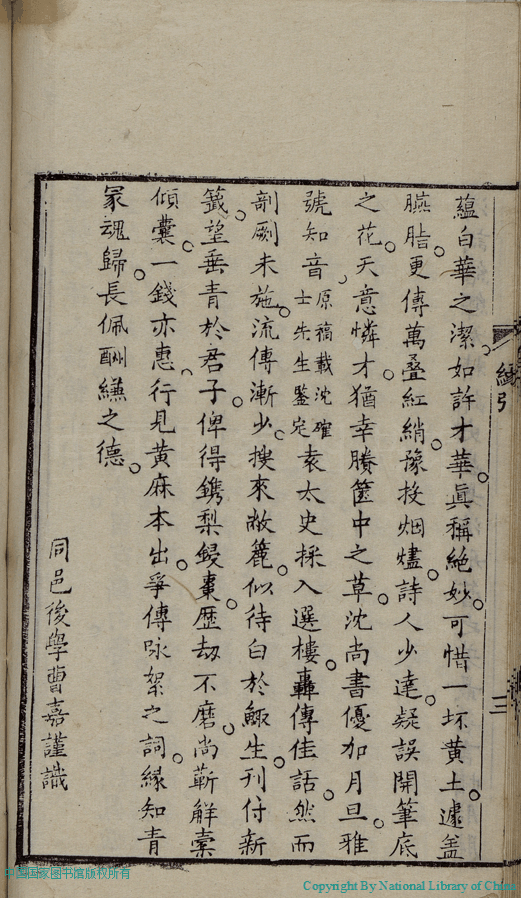 蘊白華之潔。如許才華。眞稱絶妙。可惜一坏黃土。遽盖
臙脂。更傳萬叠紅綃。豫投烟燼。詩人少達。疑誤開筆底
之花。天意憐才。猶幸賸篋中之草。沈尚書優加月旦。雅
號知音、原稿載沈確
士先生鑒定袁太史採入選樓。轟傳佳話。然而
剞劂未施。流傳漸少。搜來敝簏。似待白於鯫生。刊付新
籤。望垂青於君子。俾得鐫梨鋟棗。歷劫不磨。尚蘄解橐
傾囊。一錢亦惠、行見黃麻本出。爭傳咏絮之詞。緣知青
冢魂歸。長佩酬縑之德。
同邑後學曹嘉謹識
引
三
中国国家图书馆版权所有
Copyright By National Library of China